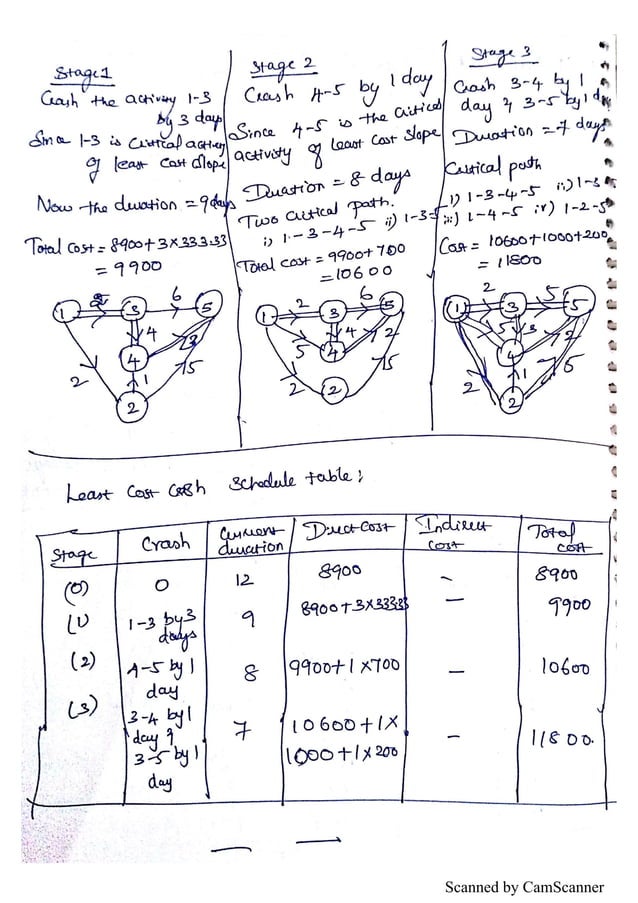 Stage 1
Crash the activity 1-3
by 3 days
Since 1-3 is critical activity
of least cost slope
Now the duration = 9 days
Total cost = 8900 + 3 × 333.33
= 9900
1 2 3 6 5
4 3
4
2 1 5
2
Stage 2
Crash 4-5 by 1 day
Since 4-5 is the critical
activity of least cost slope
Duration = 8 days
Two critical path.
i) 1-3-4-5 ii) 1-3-5
Total cost = 9900 + 700
= 10600
1 2 3 6 5
5 4 2
4
2 2 5
Stage 3
Crash 3-4 by 1
day & 3-5 by 1 day
Duration = 7 days
Critical path
i) 1-3-4-5 ii) 1-3-5
iii) 1-4-5 iv) 1-2-5
Cost = 10600 + 1000 + 200
= 11800
1 2 3 5 5
5 3 2
4
2 1 5
2
Least cost crash schedule table:
Stage Crash Current duration Direct cost Indirect cost Total cost
(0) 0 12 8900 - 8900
(1) 1-3 by 3 days 9 8900 + 3 × 333.33 - 9900
(2) 4-5 by 1 day 8 9900 + 1 × 700 - 10600
(3) 3-4 by 1 day & 3-5 by 1 day 7 10600 + 1 × 1000 + 1 × 200 - 11800.
Scanned by CamScanner